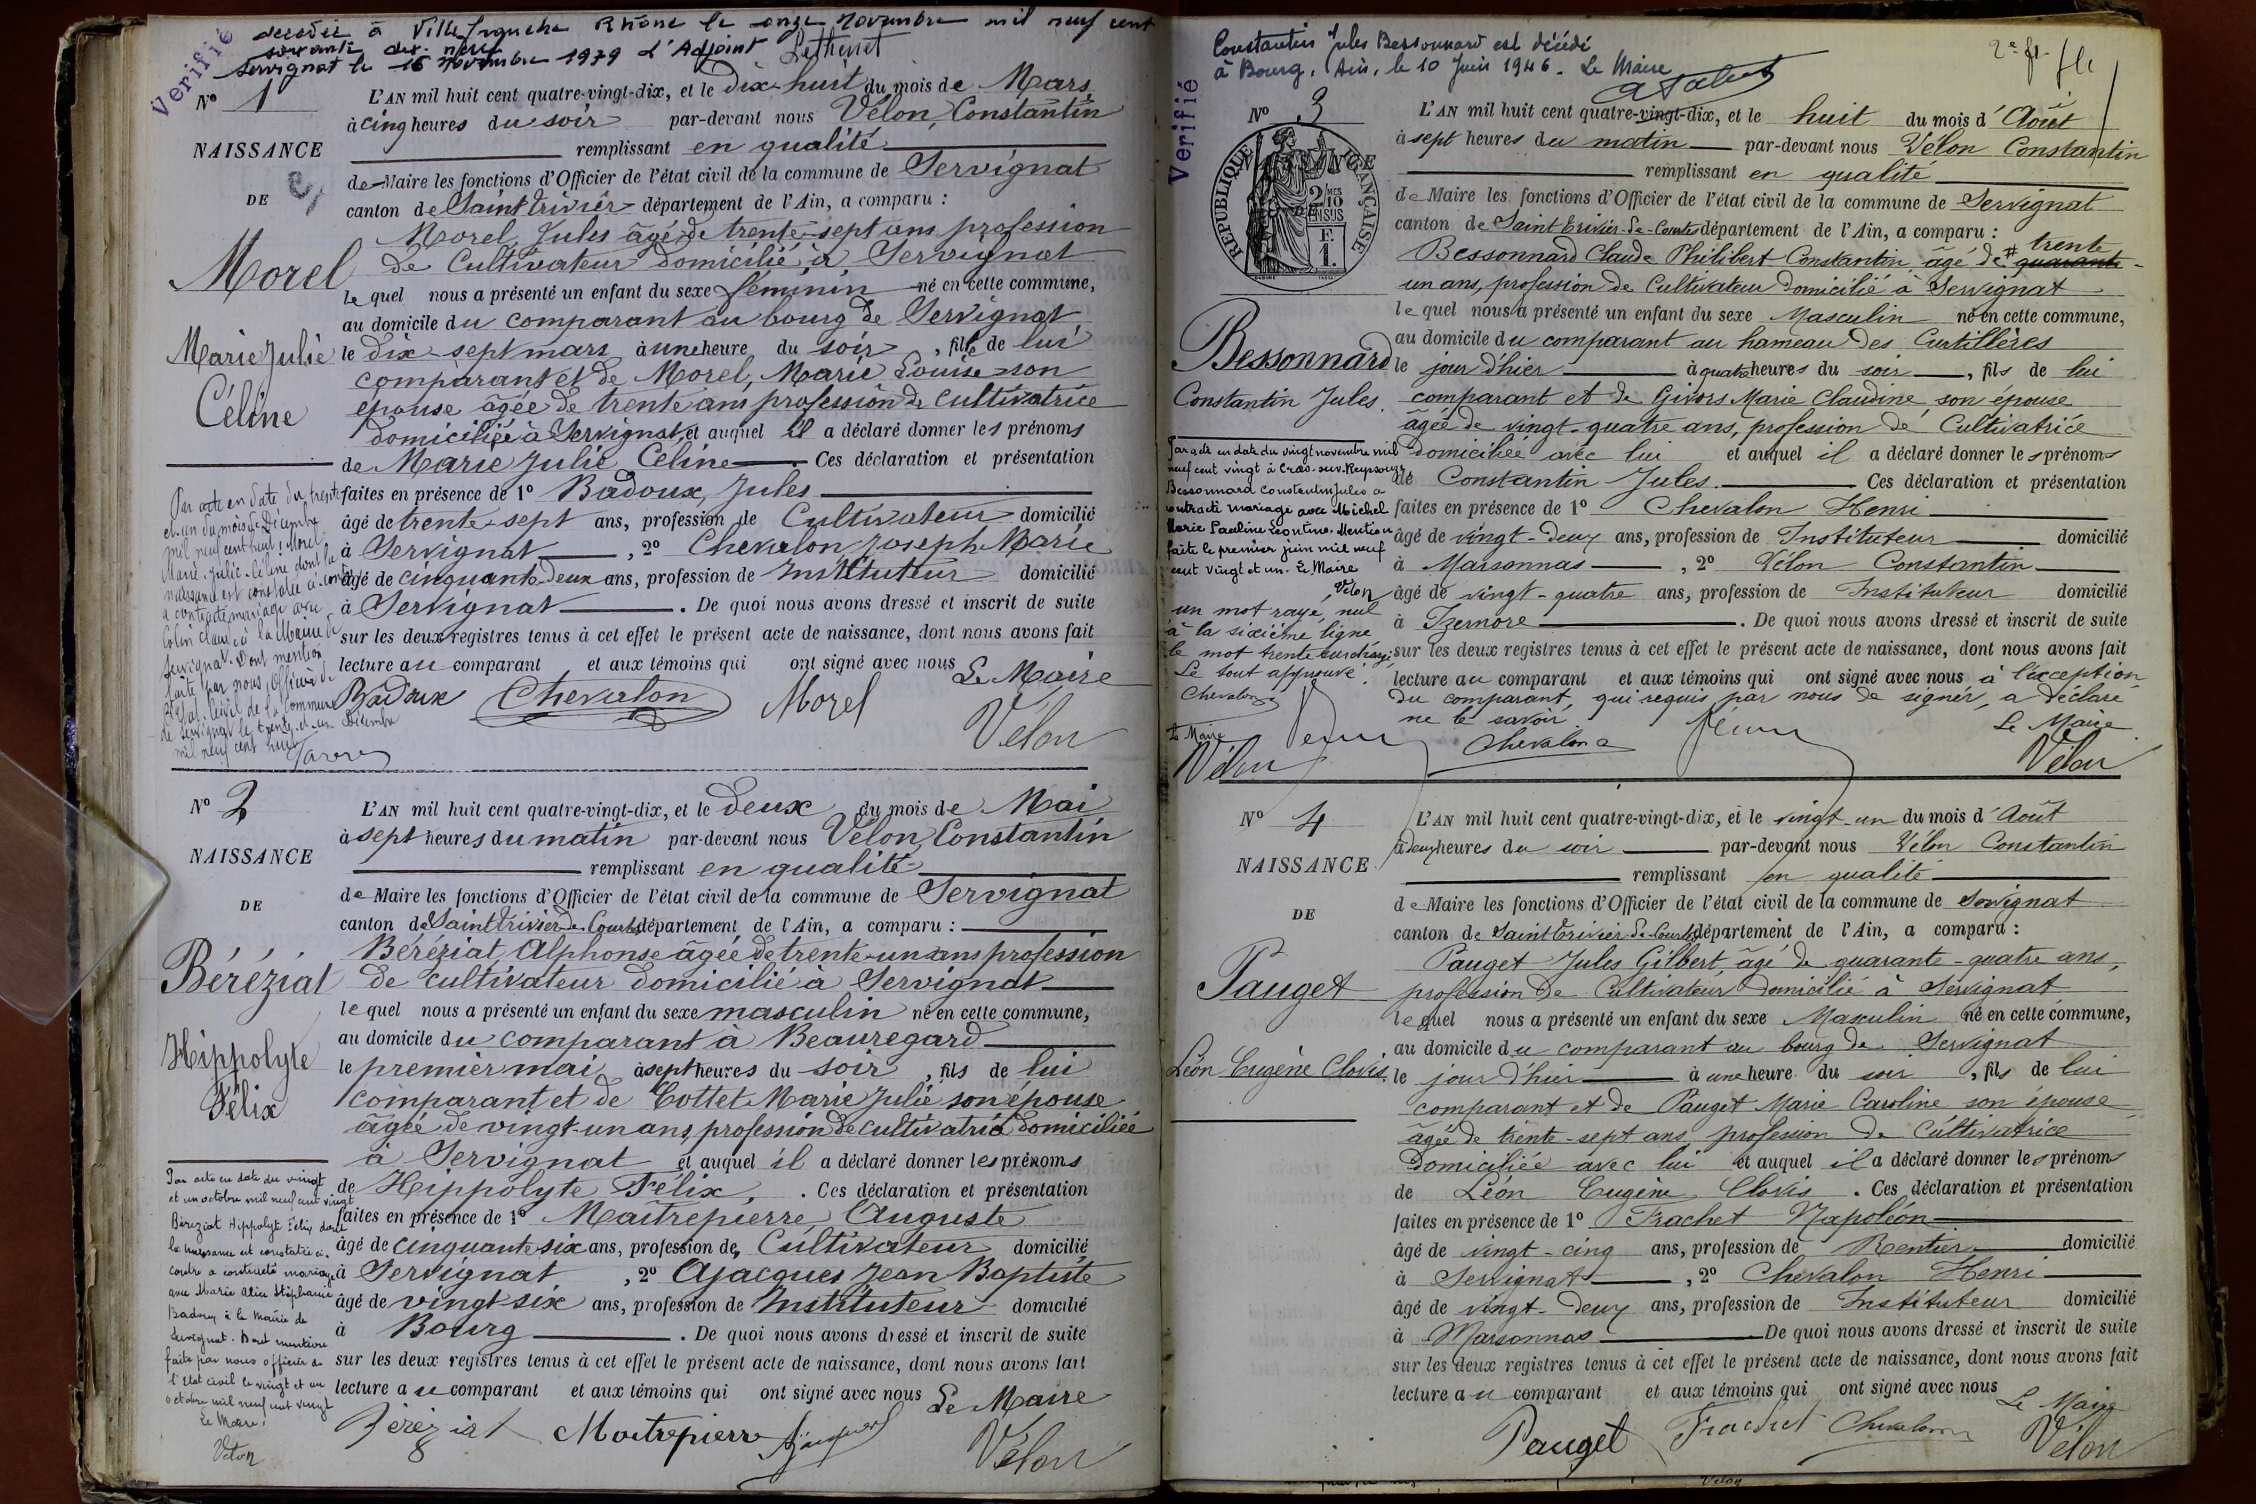 Vérifié
décédée à Villefranche Rhône le onze Novembre mil neuf cent
soixante dix-neuf
Servignat le 16 Novembre 1979 L'Adjoint
N° 1
NAISSANCE
DE
Morel
Marie Julie
Céline
L'AN mil huit cent quatre-vingt-dix, et le dix-huit du mois de Mars
à cinq heures du soir par-devant nous Vélon, Constantin
remplissant en qualité
de Maire les fonctions d'Officier de l'état civil de la commune de Servignat
canton de Saint Trivier département de l'Ain, a comparu :
Morel, Jules âgé de trente-sept ans profession
de Cultivateur domicilié à Servignat
le quel nous a présenté un enfant du sexe féminin né en cette commune,
au domicile du comparant au bourg de Servignat
le dix-sept mars à une heure du soir, fille de lui
comparant et de Morel, Marie Louise son
épouse âgée de trente ans profession de cultivatrice
domiciliée à Servignat, et auquel il a déclaré donner les prénoms
de Marie Julie Céline Ces déclaration et présentation
faites en présence de 1° Badoux, Jules
âgé de trente-sept ans, profession de Cultivateur domicilié
à Servignat, 2° Chevalon Joseph Marie
âgé de cinquante-deux ans, profession de Instituteur domicilié
à Servignat. De quoi nous avons dressé et inscrit de suite
sur les deux registres tenus à cet effet le présent acte de naissance, dont nous avons fait
lecture au comparant et aux témoins qui ont signé avec nous Le Maire
Badoux Chevalon Morel Vélon
Par acte en date du trente
et un du mois de Décembre
mil neuf cent huit, Morel
Marie-Julie-Céline dont la
naissance est constatée ci-contre
a contracté mariage avec
Colin Claude à la Mairie de
Servignat. Dont mention
faite par nous, Officier de
l'Etat-Civil de la Commune
de Servignat le trente-et-un Décembre
mil neuf cent huit
N° 2
NAISSANCE
DE
Béréziat
Hippolyte
Félix
L'AN mil huit cent quatre-vingt-dix, et le deux du mois de Mai
à sept heures du matin par-devant nous Vélon, Constantin
remplissant en qualité
de Maire les fonctions d'Officier de l'état civil de la commune de Servignat
canton de Saint Trivier de Courtes département de l'Ain, a comparu :
Béréziat, Alphonse âgée de trente-un ans profession
de cultivateur domicilié à Servignat
le quel nous a présenté un enfant du sexe masculin né en cette commune,
au domicile du comparant à Beauregard
le premier mai à sept heures du soir, fils de lui
comparant et de Cottet Marie Julie son épouse
âgée de vingt-un ans, profession de cultivatrice domiciliée
à Servignat et auquel il a déclaré donner les prénoms
de Hippolyte Félix. Ces déclaration et présentation
faites en présence de 1° Maîtrepierre, Auguste
âgé de cinquante six ans, profession de Cultivateur domicilié
à Servignat, 2° Ajacques Jean Baptiste
âgé de vingt-six ans, profession de Instituteur domicilié
à Bourg. De quoi nous avons dressé et inscrit de suite
sur les deux registres tenus à cet effet le présent acte de naissance, dont nous avons fait
lecture au comparant et aux témoins qui ont signé avec nous Le Maire
Béréziat Maitrepierre Ajacques Vélon
Par acte en date du vingt
et un octobre mil neuf cent vingt
Béréziat Hippolyte Félix dont
la naissance est constatée ci-
contre a contracté mariage
avec Marie Alice Stéphanie
Badoux à la Mairie de
Servignat. Dont mention
faite par nous officier de
l'Etat civil le vingt et un
octobre mil neuf cent vingt
Le Maire,
Vélon
Vérifié
Constantin Jules Bessonnard est décédé
à Bourg, Ain, le 10 Juin 1946. Le Maire
2e ft
N° 3
RÉPUBLIQUE FRANÇAISE
2 MES 10 EN SUS
F. 1.
Bessonnard
Constantin Jules.
L'AN mil huit cent quatre-vingt-dix, et le huit du mois d'Août
à sept heures du matin par-devant nous Vélon Constantin
remplissant en qualité
de Maire les fonctions d'Officier de l'état civil de la commune de Servignat
canton de Saint Trivier-de-Courtes département de l'Ain, a comparu :
Bessonnard Claude Philibert Constantin âgé de # trente quarante
un ans, profession de Cultivateur domicilié à Servignat
le quel nous a présenté un enfant du sexe Masculin né en cette commune,
au domicile du comparant au hameau des Curtillères
le jour d'hier à quatre heures du soir, fils de lui
comparant et de Givors Marie Claudine son épouse
âgée de vingt-quatre ans, profession de Cultivatrice
domiciliée avec lui et auquel il a déclaré donner les prénoms
de Constantin Jules. Ces déclaration et présentation
faites en présence de 1° Chevalon Henri
âgé de vingt-deux ans, profession de Instituteur domicilié
à Marsonnas, 2° Vélon Constantin
âgé de vingt-quatre ans, profession de Instituteur domicilié
à Izernore. De quoi nous avons dressé et inscrit de suite
sur les deux registres tenus à cet effet le présent acte de naissance, dont nous avons fait
lecture au comparant et aux témoins qui ont signé avec nous à l'exception
du comparant, qui requis par nous de signer, a déclaré
ne le savoir. Le Maire
Chevalon Vélon
Par acte en date du vingt novembre mil
neuf cent vingt à Cras-sur-Reyssouze
Bessonnard Constantin Jules a
contracté mariage avec Michel
Marie Pauline Léontine. Mention
faite le premier juin mil neuf
cent vingt et un. Le Maire
Vélon
un mot rayé, nul
à la sixième ligne
le mot trente surchargé
Le tout approuvé.
Chevalon
Le Maire
Vélon
N° 4
NAISSANCE
DE
Pauget
Léon Eugène Clovis.
L'AN mil huit cent quatre-vingt-dix, et le vingt-un du mois d'Août
à deux heures du soir par-devant nous Vélon Constantin
remplissant en qualité
de Maire les fonctions d'Officier de l'état civil de la commune de Servignat
canton de Saint Trivier-de-Courtes département de l'Ain, a comparu :
Pauget Jules Gilbert, âgé de quarante-quatre ans,
profession de Cultivateur domicilié à Servignat
le quel nous a présenté un enfant du sexe Masculin né en cette commune,
au domicile du comparant au bourg de Servignat
le jour d'hier à une heure du soir, fils de lui
comparant et de Pauget Marie Caroline son épouse
âgée de trente-sept ans, profession de Cultivatrice
domiciliée avec lui et auquel il a déclaré donner les prénoms
de Léon Eugène Clovis. Ces déclaration et présentation
faites en présence de 1° Frachet Napoléon
âgé de vingt-cinq ans, profession de Rentier domicilié
à Servignat, 2° Chevalon Henri
âgé de vingt-deux ans, profession de Instituteur domicilié
à Marsonnas De quoi nous avons dressé et inscrit de suite
sur les deux registres tenus à cet effet le présent acte de naissance, dont nous avons fait
lecture au comparant et aux témoins qui ont signé avec nous Le Maire
Pauget Frachet Chevalon Vélon